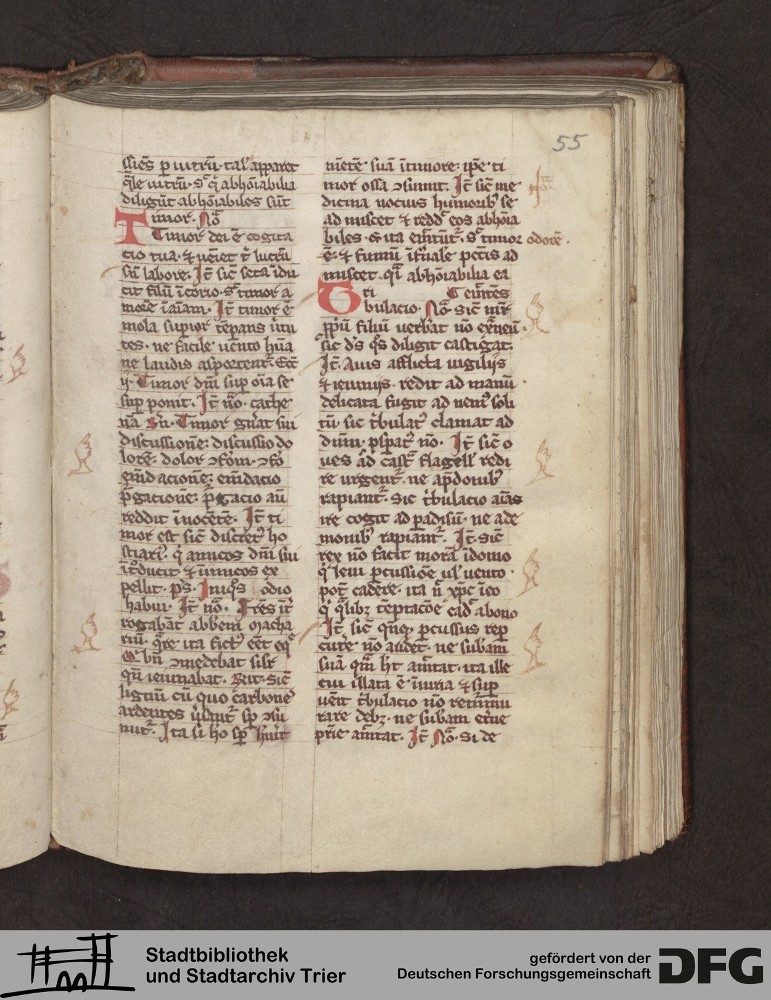 55
ssiēs p uitrū. tal' apparet
q̄le uitrū. sꝰ q̄ abhōiabilia
diligūt abhōiabiles sūt
Timor. Nō
Timor dei ē cogita
cio tua. ⁊ ueniet t' lucrū
sn̄ labore. Jt̄ sic̄ seta īdu
cit filū ī corio. sꝰ timor a
morē ī aīam. Jt̄ timor ē
mola supior tēpans ūtu
tes. ne facile uento hūa
ne laudis asportent᷑. Ecc̄
Timor dn̄i sup oīa se
sup ponit. Jt̄ nō. cathe
na Timor gn̄at sui
discussionē: discussio do
lorē: dolor
emēdacionē: emēdacio
p̄gacionē: p̄gacio aū
reddit īnocētē. Jt̄ ti
mor est sic̄ discret' ho
stiari'. q̄ amicos dn̄i sui
ītroducit. ⁊ inimicos ex
pellit. ps. Jniq̄s odio
habui. Jt̄ nō. Fr̄es īt
rogabāt abbem macha
riū. q̄re ita sicc' eēt eq̄
bn̄ 9medebat sic̄
qn̄ ieiunabat. R̄it. Sic̄
lignū cū quo carbone'
ardentes ūsant᷑ sp 9su
mit᷑. Jta si ho sp hūit
mētē suā ī timore: ip̄e ti
mor ossa 9sumit. Jt̄ sic̄ me
dicina nociuis humorib' se
ad miscet ⁊ redd' eos abhōia
biles. ⁊ ita emittūt᷑. sꝰ timor odorē.
ē. ⁊ fumū īfn̄ale pctis ad
miscet. q̄i abhōiabilia ea
Tri emittēs
bulacio. Nō. Sic̄ mr̄
pp̄ū filiū uerb'at nō ext̄neū.
sic d's q̄s diligit castigat.
Jt̄. Auis afflicta uigilijs
⁊ ieiunijs. redit ad manū.
delicata fugit ad nem' soli
tū. sic t'bulat' clamat ad
dn̄m. psp̄at' nō. Jt̄ sic̄ o
ues ad cast̄ flagell' redi
re urgent᷑. ne
rapiant᷑. Sic t'bulacio aīas
ire cogit ad padisū. ne a de
monib' rapiant᷑. Jt̄. Sic̄
rex nō facit morā ī domo
q̄ leui pcussiōe ul' uento.
pot̄ cadere. ita n̄ xp̄c ī eo
q̄ q̄libꝫ tēptacōe cad' a bono
Jt̄. sic̄ pcussus rep
cutē nō audet. ne
suā q̄m h̄t amittat. ita ille
cui illata ē iniuria ⁊ sup
uēit t'bulacio nō remmu
rare debꝫ. ne
p̄rie amittat. Jt̄ Nō. Si de
Stadtbibliothek
und Stadtarchiv Trier
gefördert von der
Deutschen Forschungsgemeinschaft
DFG